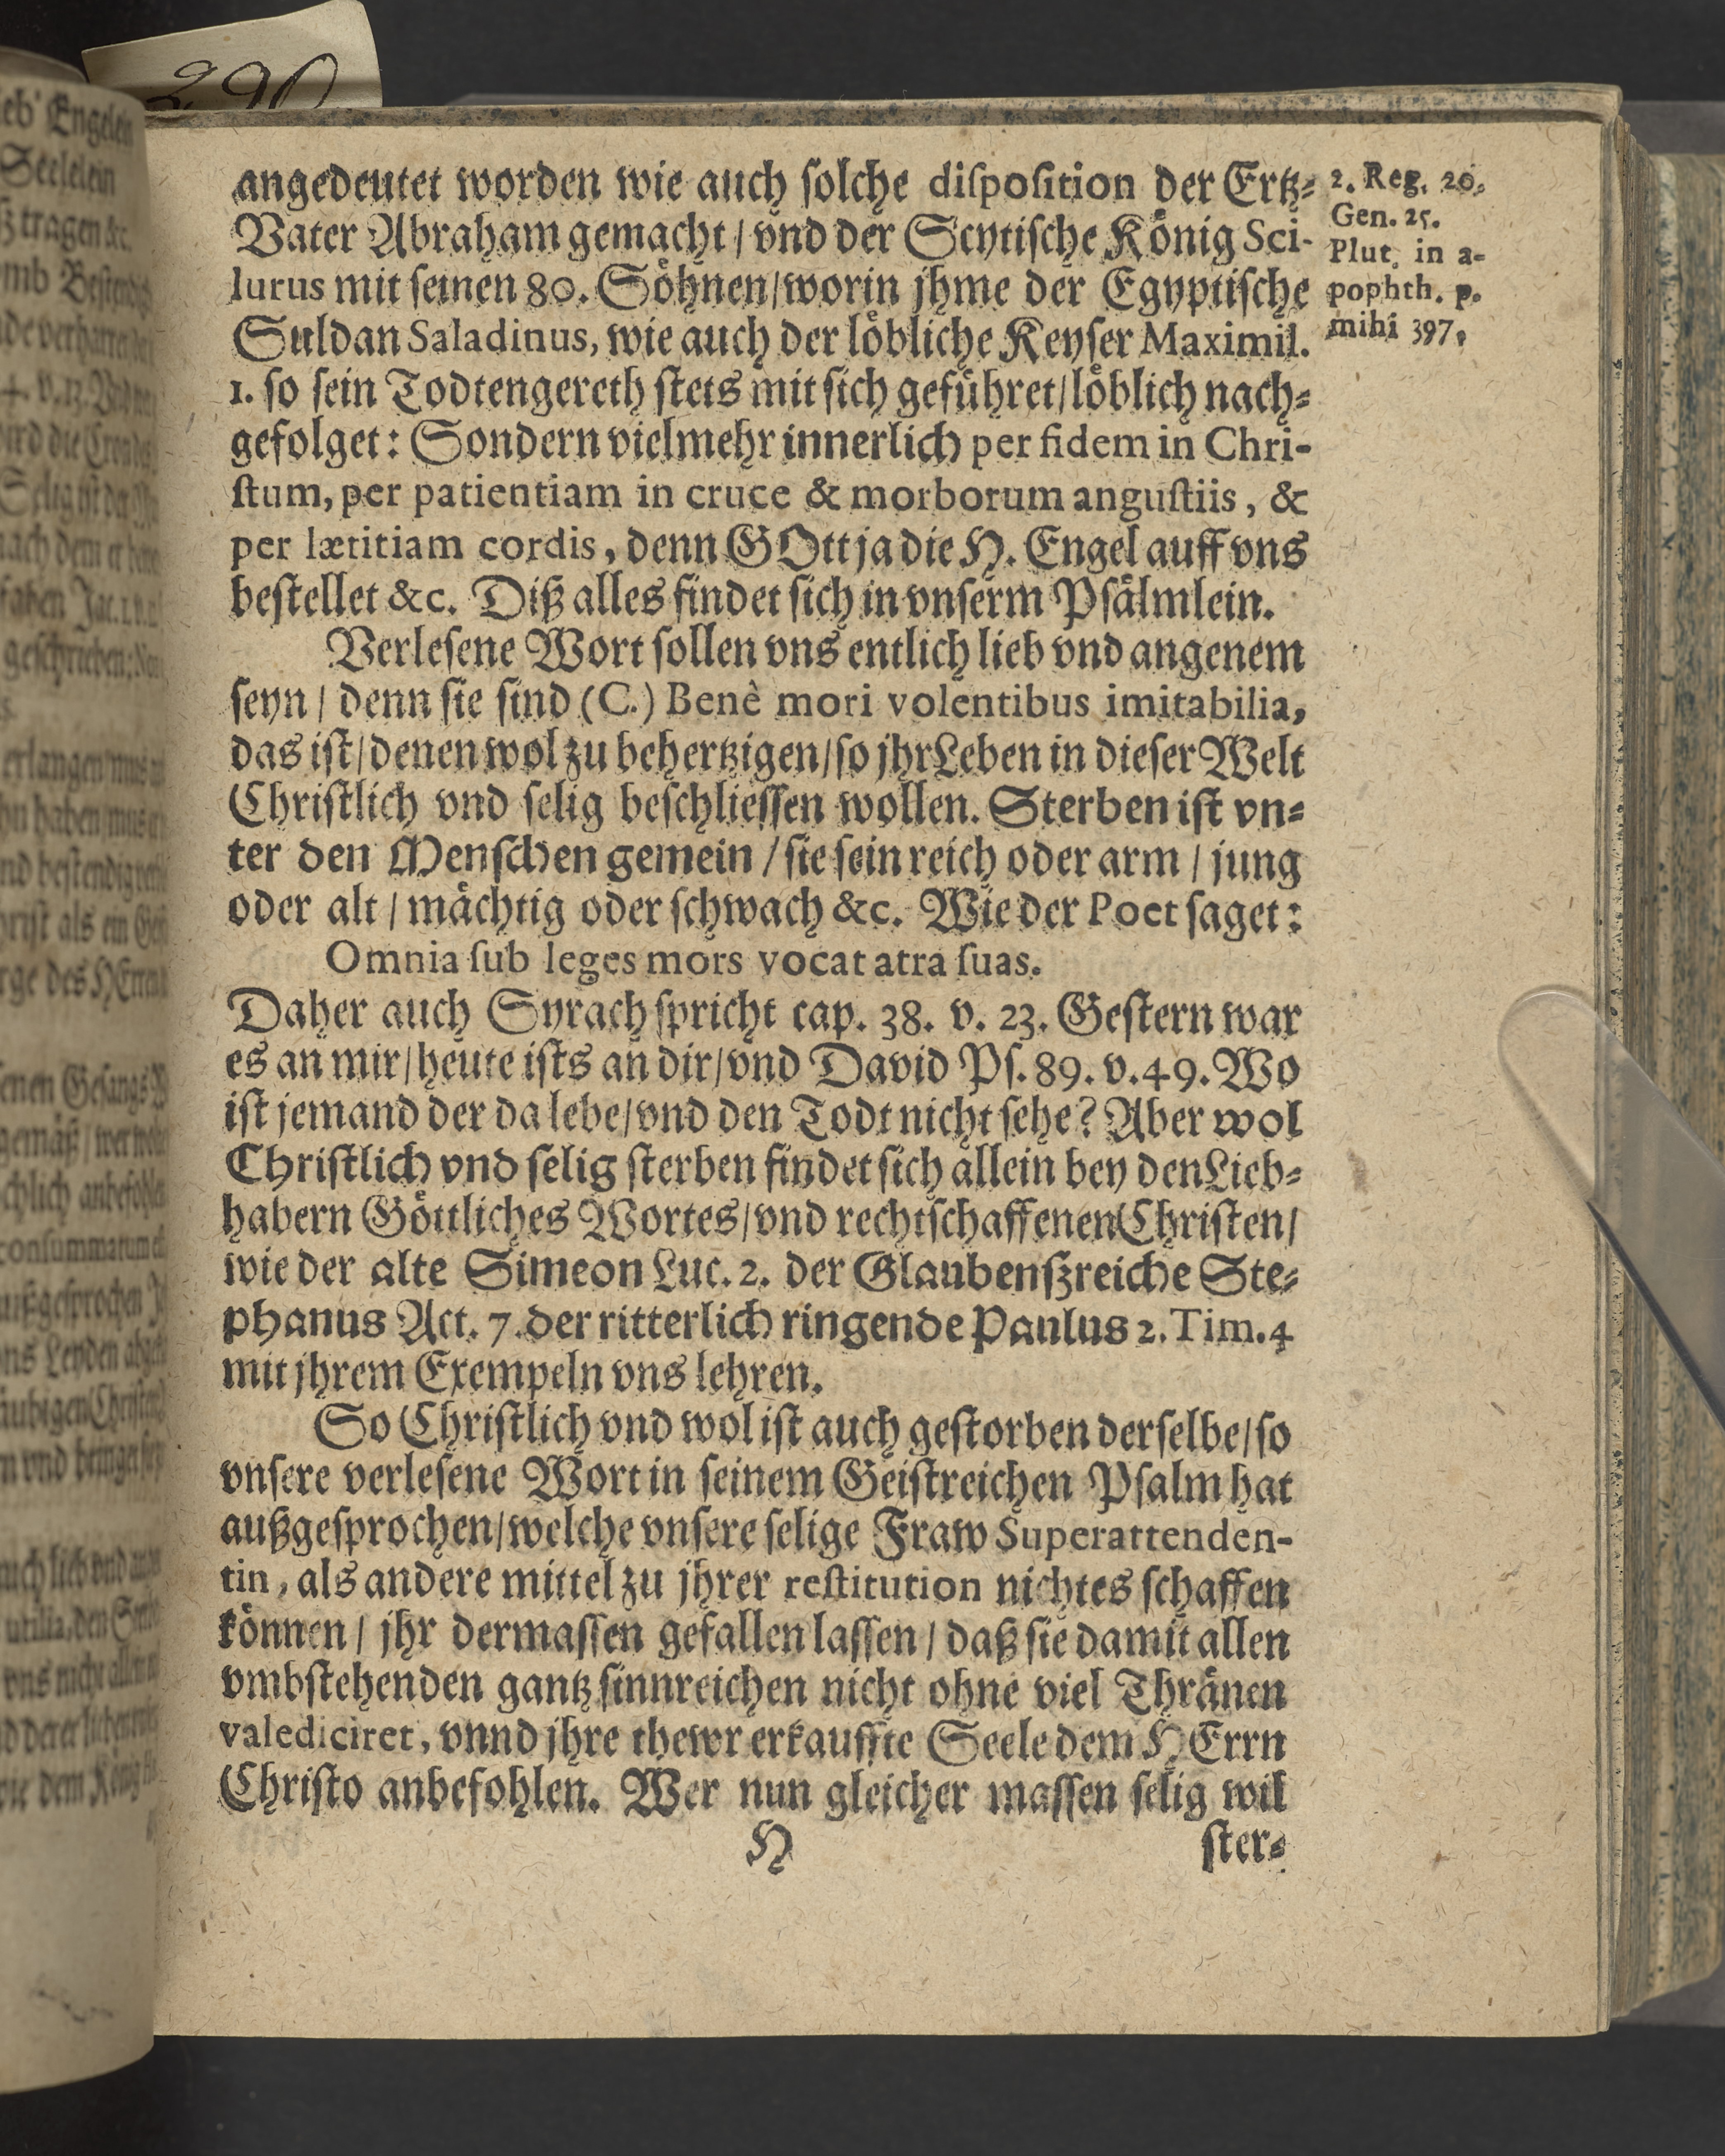 290
angedeutet worden wie auch ſolche diſpoſition der Ertz⸗
Vater Abraham gemacht / vnd der Scytiſche König Sci-
lurus mit ſeinen 80. Söhnen/worin jhme der Egyptiſche
Suldan Saladinus, wie auch der löbliche Keyſer Maximil.
1. ſo ſein Todtengereth ſtets mit ſich geführet/löblich nach⸗
gefolget: Sondern vielmehr innerlich per fidem in Chri-
ſtum, per patientiam in cruce & morborum anguſtiis, &
per lætitiam cordis, denn GOtt ja die H. Engel auff vns
beſtellet &c. Diß alles findet ſich in vnſerm Pſälmlein.
Verleſene Wort ſollen vns entlich lieb vnd angenem
ſeyn / denn ſie ſind (C.) Benè mori volentibus imitabilia,
das iſt/denen wol zu behertzigen/ſo jhr Leben in dieſer Welt
Chriſtlich vnd ſelig beſchlieſſen wollen. Sterben iſt vn⸗
ter den Menſchen gemein / ſie ſein reich oder arm / jung
oder alt / mächtig oder ſchwach &c. Wie der Poet ſaget:
Omnia ſub leges mors vocat atra ſuas.
Daher auch Syrach ſpricht cap. 38. v. 23. Geſtern war
es an mir/heute iſts an dir/vnd David Pſ. 89. v. 49. Wo
iſt jemand der da lebe/vnd den Todt nicht ſehe? Aber wol
Chriſtlich vnd ſelig ſterben findet ſich allein bey den Lieb⸗
habern Göttliches Wortes/vnd rechtſchaffenen Chriſten/
wie der alte Simeon Luc. 2. der Glaubenſzreiche Ste⸗
phanus Act. 7. der ritterlich ringende Paulus 2. Tim. 4
mit jhrem Exempeln vns lehren.
So Chriſtlich vnd wol iſt auch geſtorben derſelbe/ſo
vnſere verleſene Wort in ſeinem Geiſtreichen Pſalm hat
außgeſprochen/welche vnſere ſelige Fraw Superattenden-
tin, als andere mittel zu jhrer reſtitution nichtes ſchaffen
können / jhr dermaſſen gefallen laſſen / daß ſie damit allen
vmbſtehenden gantz ſinnreichen nicht ohne viel Thränen
valediciret, vnnd jhre thewr erkauffte Seele dem HErrn
Chriſto anbefohlen. Wer nun gleicher maſſen ſelig wil
H ſter⸗
2. Reg. 20.
Gen. 25.
Plut. in a-
pophth. p.
mihi 397.